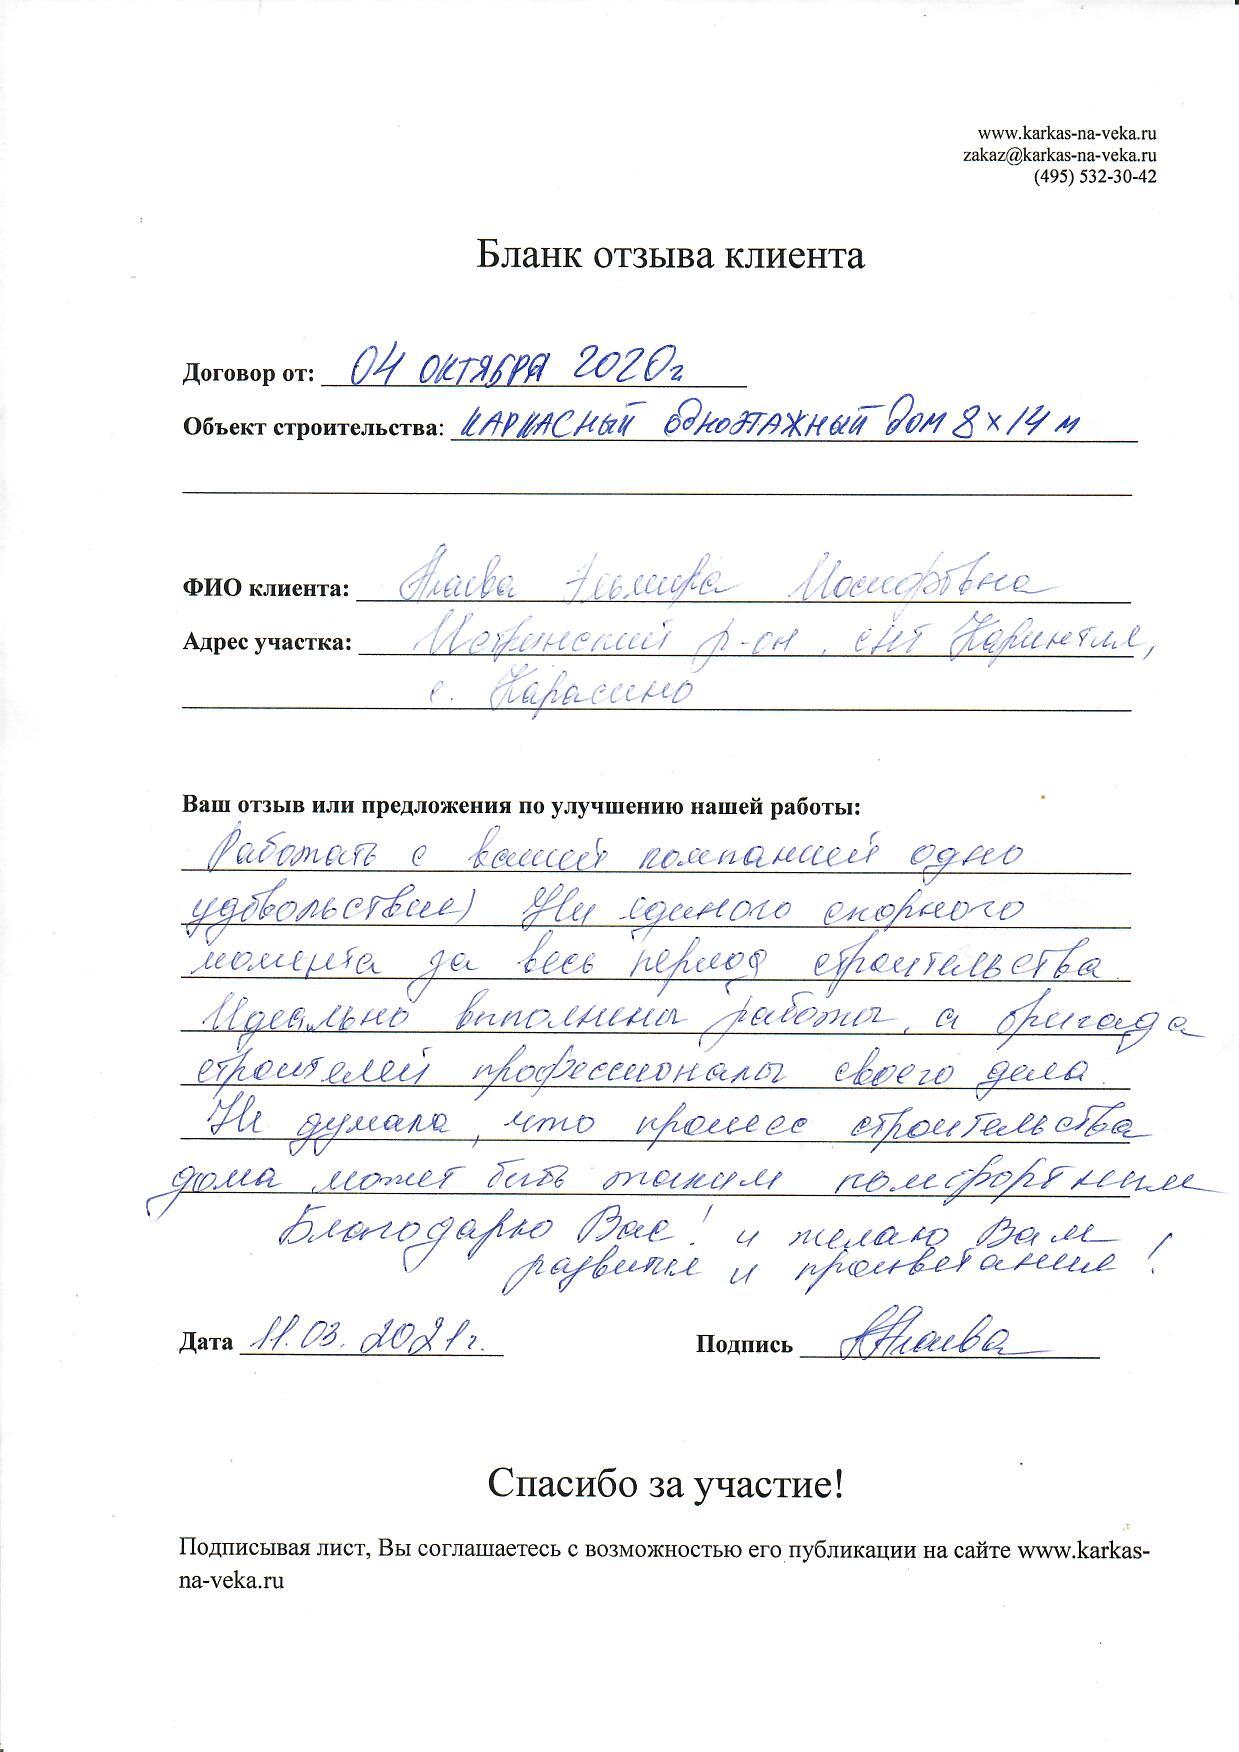 www.karkas-na-veka.ru
zakaz@karkas-na-veka.ru
(495) 532-30-42
Бланк отзыва клиента
Договор от: 04 октября 2020г
Объект строительства: каркасный одноэтажный дом 8х14 м
ФИО клиента: Эльмира Иосифовна
Адрес участка: Истринский р-он, снт Каринтия,
с. Карасино
Ваш отзыв или предложения по улучшению нашей работы:
Работать с вашей компанией одно
удовольствие) Ни единого спорного
момента за весь период строительства
Идеально выполнены работы, а бригада
строителей профессионалы своего дела.
Не думала, что процесс строительства
дома может быть таким комфортным
Благодарю Вас! и желаю Вам
развития и процветания!
Дата 11.03.2021г. Подпись
Спасибо за участие!
Подписывая лист, Вы соглашаетесь с возможностью его публикации на сайте www.karkas-
na-veka.ru